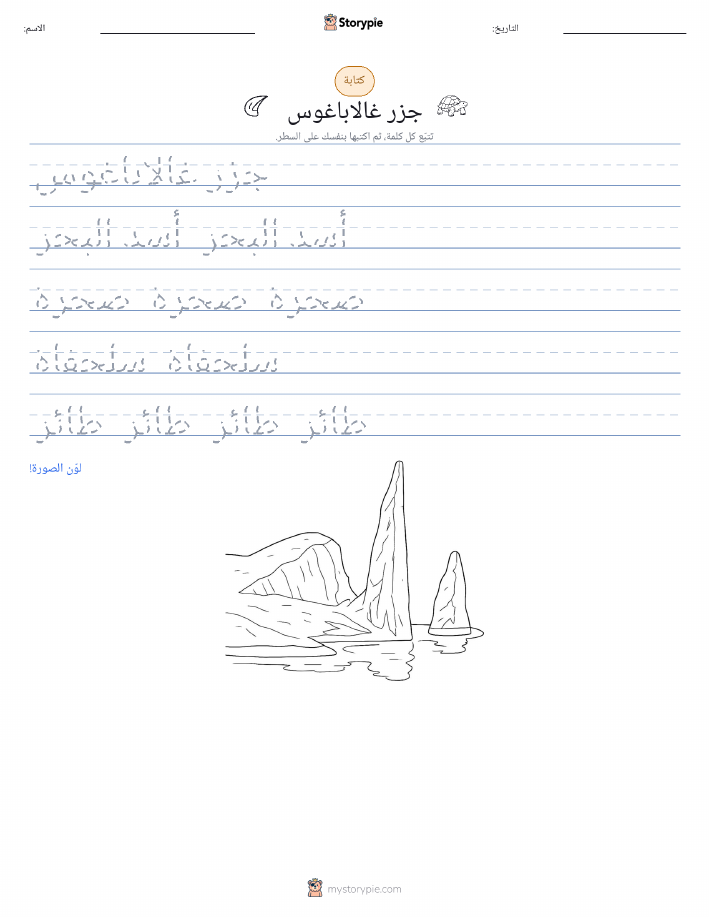 Storypie
الاسم:
التاريخ:
كتابة
جزر غالاباغوس
تتبّع كل كلمة، ثم اكتبها بنفسك على السطر.
جزر غالاباغوس
أسد البحر أسد البحر
صخرة صخرة صخرة
سلحفاة سلحفاة
طائر طائر طائر طائر
لوّن الصورة!
mystorypie.com